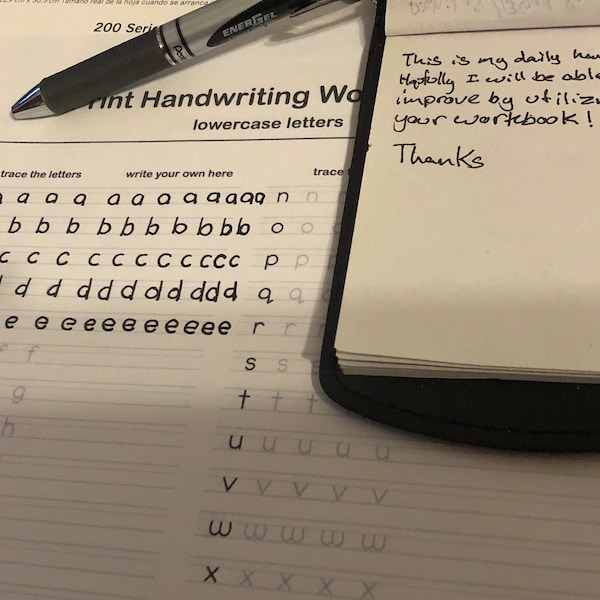 200 Serie
ENERGEL
rint Handwriting Wo
lowercase letters
trace the letters write your own here trace
a a a a a a a a a a a n n
b b b b b b b b b b b o o
c c c c c c c c c c c c p p
d d d d d d d d d d d q q
e e e e e e e e e e e e r r r
f f s s s
g t t t
h u u u u u
v v v v v
w w w w w
x x x x x
This is my daily han
Hopfully I will be able
improve by utilizi
your workbook!
Thanks